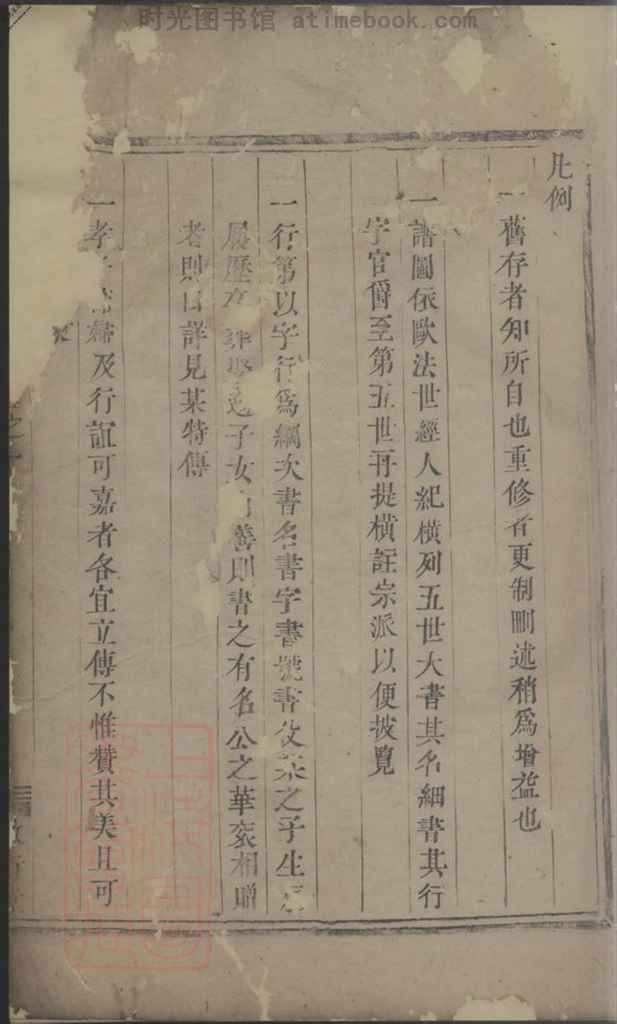 时光图书馆 atimebook.com
凡例
一舊存者知所自也重修者更制刪述稍為增益也
一譜圖依歐法世經人紀橫列五世大書其名細書其行
字官爵至第五世再提橫註宗派以便披覽
一行第以字行為綱次書名書字書號書父某之子生
履歷 子女 善則書之有名公之華袞相贈
者則曰詳見某特傳
一孝 婦及行誼可嘉者各宜立傳不惟贊其美且可